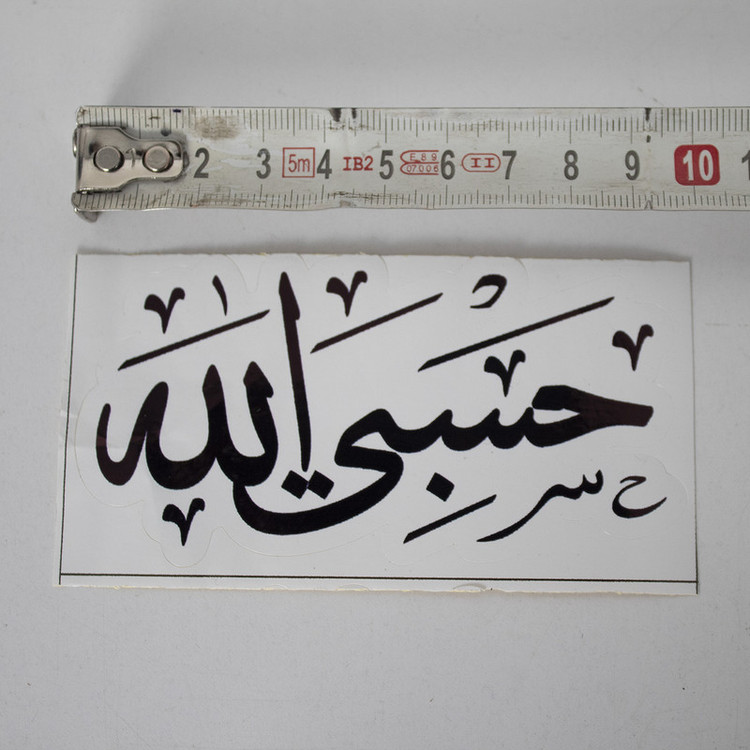 2 3 5m 4 IB2 5 E89 07.006 6 II 7 8 9 10
حسبي الله